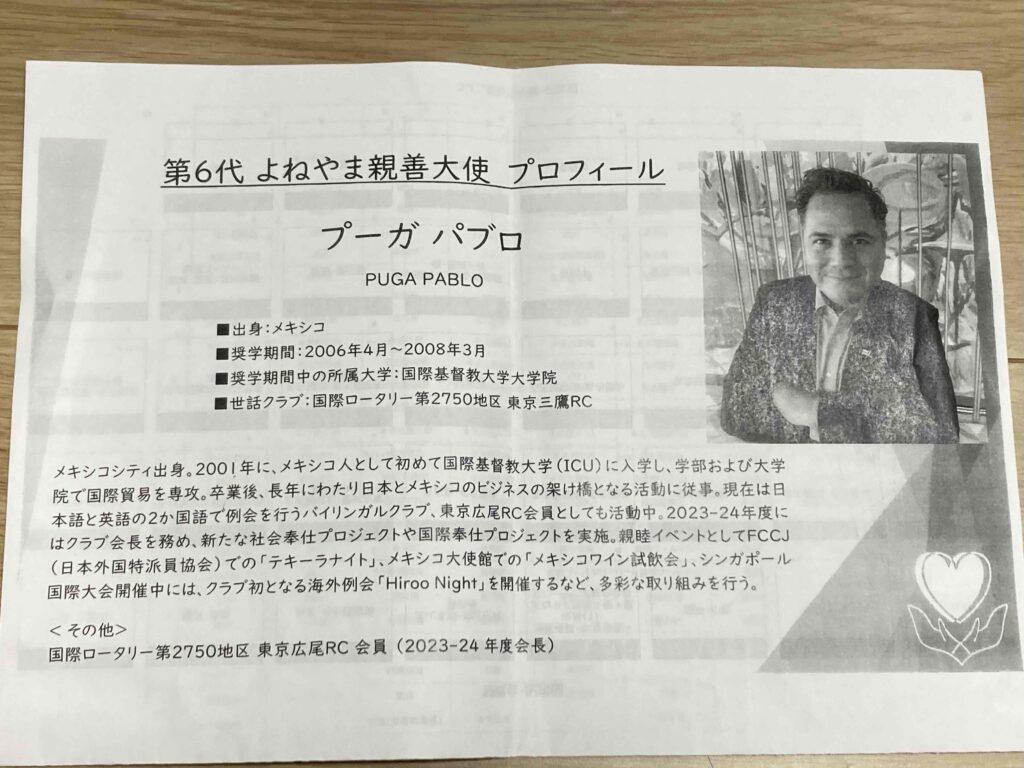 第6代 よねやま親善大使 プロフィール
プーガ パブロ
PUGA PABLO
■出身：メキシコ
■奨学期間：2006年4月～2008年3月
■奨学期間中の所属大学：国際基督教大学大学院
■世話クラブ：国際ロータリー第2750地区 東京三鷹RC
メキシコシティ出身。2001年に、メキシコ人として初めて国際基督教大学（ICU）に入学し、学部および大学
院で国際貿易を専攻。卒業後、長年にわたり日本とメキシコのビジネスの架け橋となる活動に従事。現在は日
本語と英語の2か国語で例会を行うバイリンガルクラブ、東京広尾RC会員としても活動中。2023-24年度に
はクラブ会長を務め、新たな社会奉仕プロジェクトや国際奉仕プロジェクトを実施。親睦イベントとしてFCCJ
（日本外国特派員協会）での「テキーラナイト」、メキシコ大使館での「メキシコワイン試飲会」、シンガポール
国際大会開催中には、クラブ初となる海外例会「Hiroo Night」を開催するなど、多彩な取り組みを行う。
＜その他＞
国際ロータリー第2750地区 東京広尾RC 会員（2023-24 年度会長）